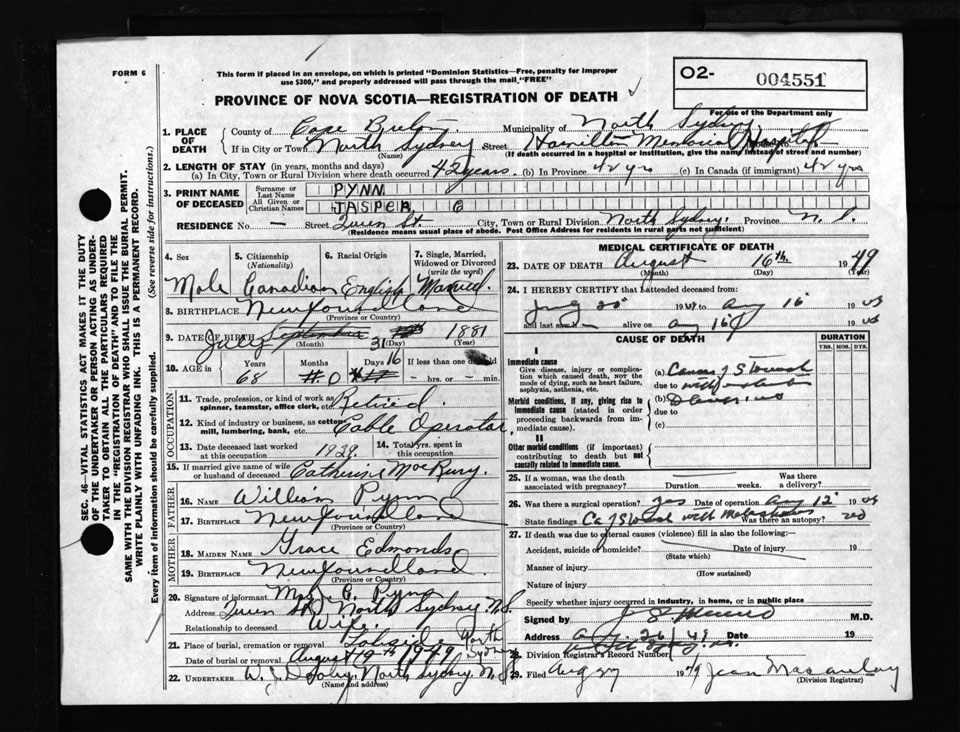 FORM 6
This form if placed in an envelope, on which is printed "Dominion Statistics—Free, penalty for improper
use $300," and properly addressed will pass through the mail "FREE"
PROVINCE OF NOVA SCOTIA—REGISTRATION OF DEATH
O2- 004551
For use of the Department only
SEC. 46—VITAL STATISTICS ACT MAKES IT THE DUTY
OF THE UNDERTAKER OR PERSON ACTING AS UNDER-
TAKER TO OBTAIN ALL THE PARTICULARS REQUIRED
IN THE "REGISTRATION OF DEATH" AND TO FILE THE
SAME WITH THE DIVISION REGISTRAR WHO SHALL ISSUE THE BURIAL PERMIT.
WRITE PLAINLY WITH UNFADING INK. THIS IS A PERMANENT RECORD.
Every item of information should be carefully supplied. (See reverse side for instructions.)
1. PLACE OF DEATH
County of Cape Breton Municipality of North Sydney
If in City or Town North Sydney Street Hamilton Memorial Hospital
(Name) (If death occurred in a hospital or institution, give the name instead of street and number)
2. LENGTH OF STAY (in years, months and days)
(a) In City, Town or Rural Division where death occurred 42 years. (b) In Province 42 yrs (c) In Canada (if immigrant) 42 yrs
3. PRINT NAME OF DECEASED
Surname or Last Name PYNN
All Given or Christian Names JASPER G
RESIDENCE No. — Street Queen St. City, Town or Rural Division North Sydney. Province N. S.
(Residence means usual place of abode. Post Office Address for residents in rural parts not sufficient)
4. Sex
5. Citizenship (Nationality)
6. Racial Origin
7. Single, Married, Widowed or Divorced (write the word)
Male Canadian English Married.
8. BIRTHPLACE Newfoundland
(Province or County)
9. DATE OF BIRTH July September 31 1881
(Month) (Day) (Year)
10. AGE in Years Months Days If less than one day old
68 0 16 — hrs. or — min.
OCCUPATION
11. Trade, profession, or kind of work as spinner, teamster, office clerk, etc. Retired.
12. Kind of industry or business, as cotton mill, lumbering, bank, etc. Cable Operator
13. Date deceased last worked at this occupation 1929.
14. Total yrs. spent in this occupation
15. If married give name of wife or husband of deceased Catherine MacRury.
FATHER
16. NAME William Pynn
17. BIRTHPLACE Newfoundland
(Province or Country)
MOTHER
18. MAIDEN NAME Grace Edmonds
19. BIRTHPLACE Newfoundland.
(Province or Country)
20. Signature of informant G. Pynn
Address Queen St North Sydney N.S.
Relationship to deceased Wife.
21. Place of burial, cremation or removal Lakeside North Sydney
Date of burial or removal August 19th 1949
22. UNDERTAKER W. J. Dooley. North Sydney N.S.
(Name and address)
MEDICAL CERTIFICATE OF DEATH
23. DATE OF DEATH August 16th. 1949
(Month) (Day) (Year)
24. I HEREBY CERTIFY that I attended deceased from:
to Aug 16
and last saw h alive on Aug 16
CAUSE OF DEATH
DURATION
YRS. MOS. DYS.
I
Immediate cause
Give disease, injury or complication which caused death, not the mode of dying, such as heart failure, asphyxia, asthenia, etc.
(a) Cancer of Stomach
due to with
Morbid conditions, if any, giving rise to immediate cause (stated in order proceeding backwards from immediate cause).
(b)
due to
(c)
II
Other morbid conditions (if important) contributing to death but not causally related to immediate cause.
25. If a woman, was the death associated with pregnancy? Duration weeks. Was there a delivery?
26. Was there a surgical operation? yes Date of operation Aug 12
State findings Ca of Stomach with Metastases Was there an autopsy? no
27. If death was due to external causes (violence) fill in also the following:
Accident, suicide or homicide? Date of injury 19
(State which)
Manner of injury
(How sustained)
Nature of injury
Specify whether injury occurred in industry, in home, or in public place
Signed by M.D.
Address Date 19
28. Division Registrar's Record Number
29. Filed Aug 27 1949 Jean Macaulay
(Division Registrar)